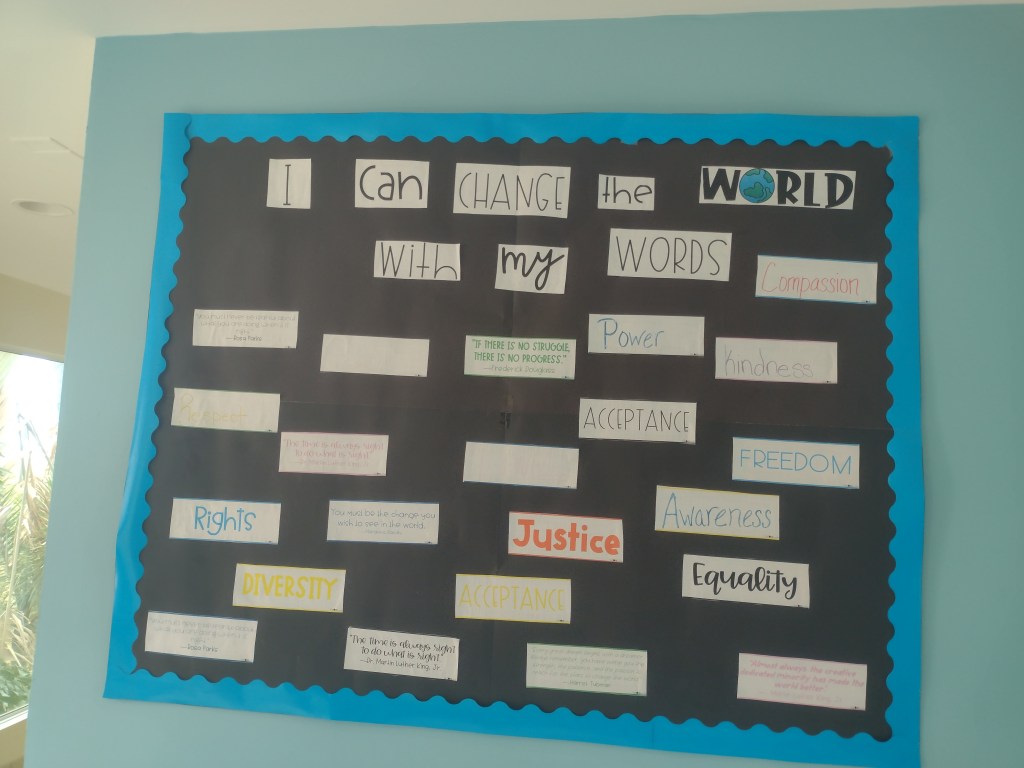 I can CHANGE the WORLD
With my WORDS
Compassion
— Rosa Parks
"IF THERE IS NO STRUGGLE,
THERE IS NO PROGRESS."
—Frederick Douglass
Power
Kindness
Respect
ACCEPTANCE
"The time is always right
to do what is right"
FREEDOM
Rights
You must be the change you
wish to see in the world.
Justice
Awareness
DIVERSITY
ACCEPTANCE
Equality
— Rosa Parks
"The time is always right
to do what is right"
—Dr. Martin Luther King, Jr.
"Almost always, the creative
dedicated minority has made the
world better."